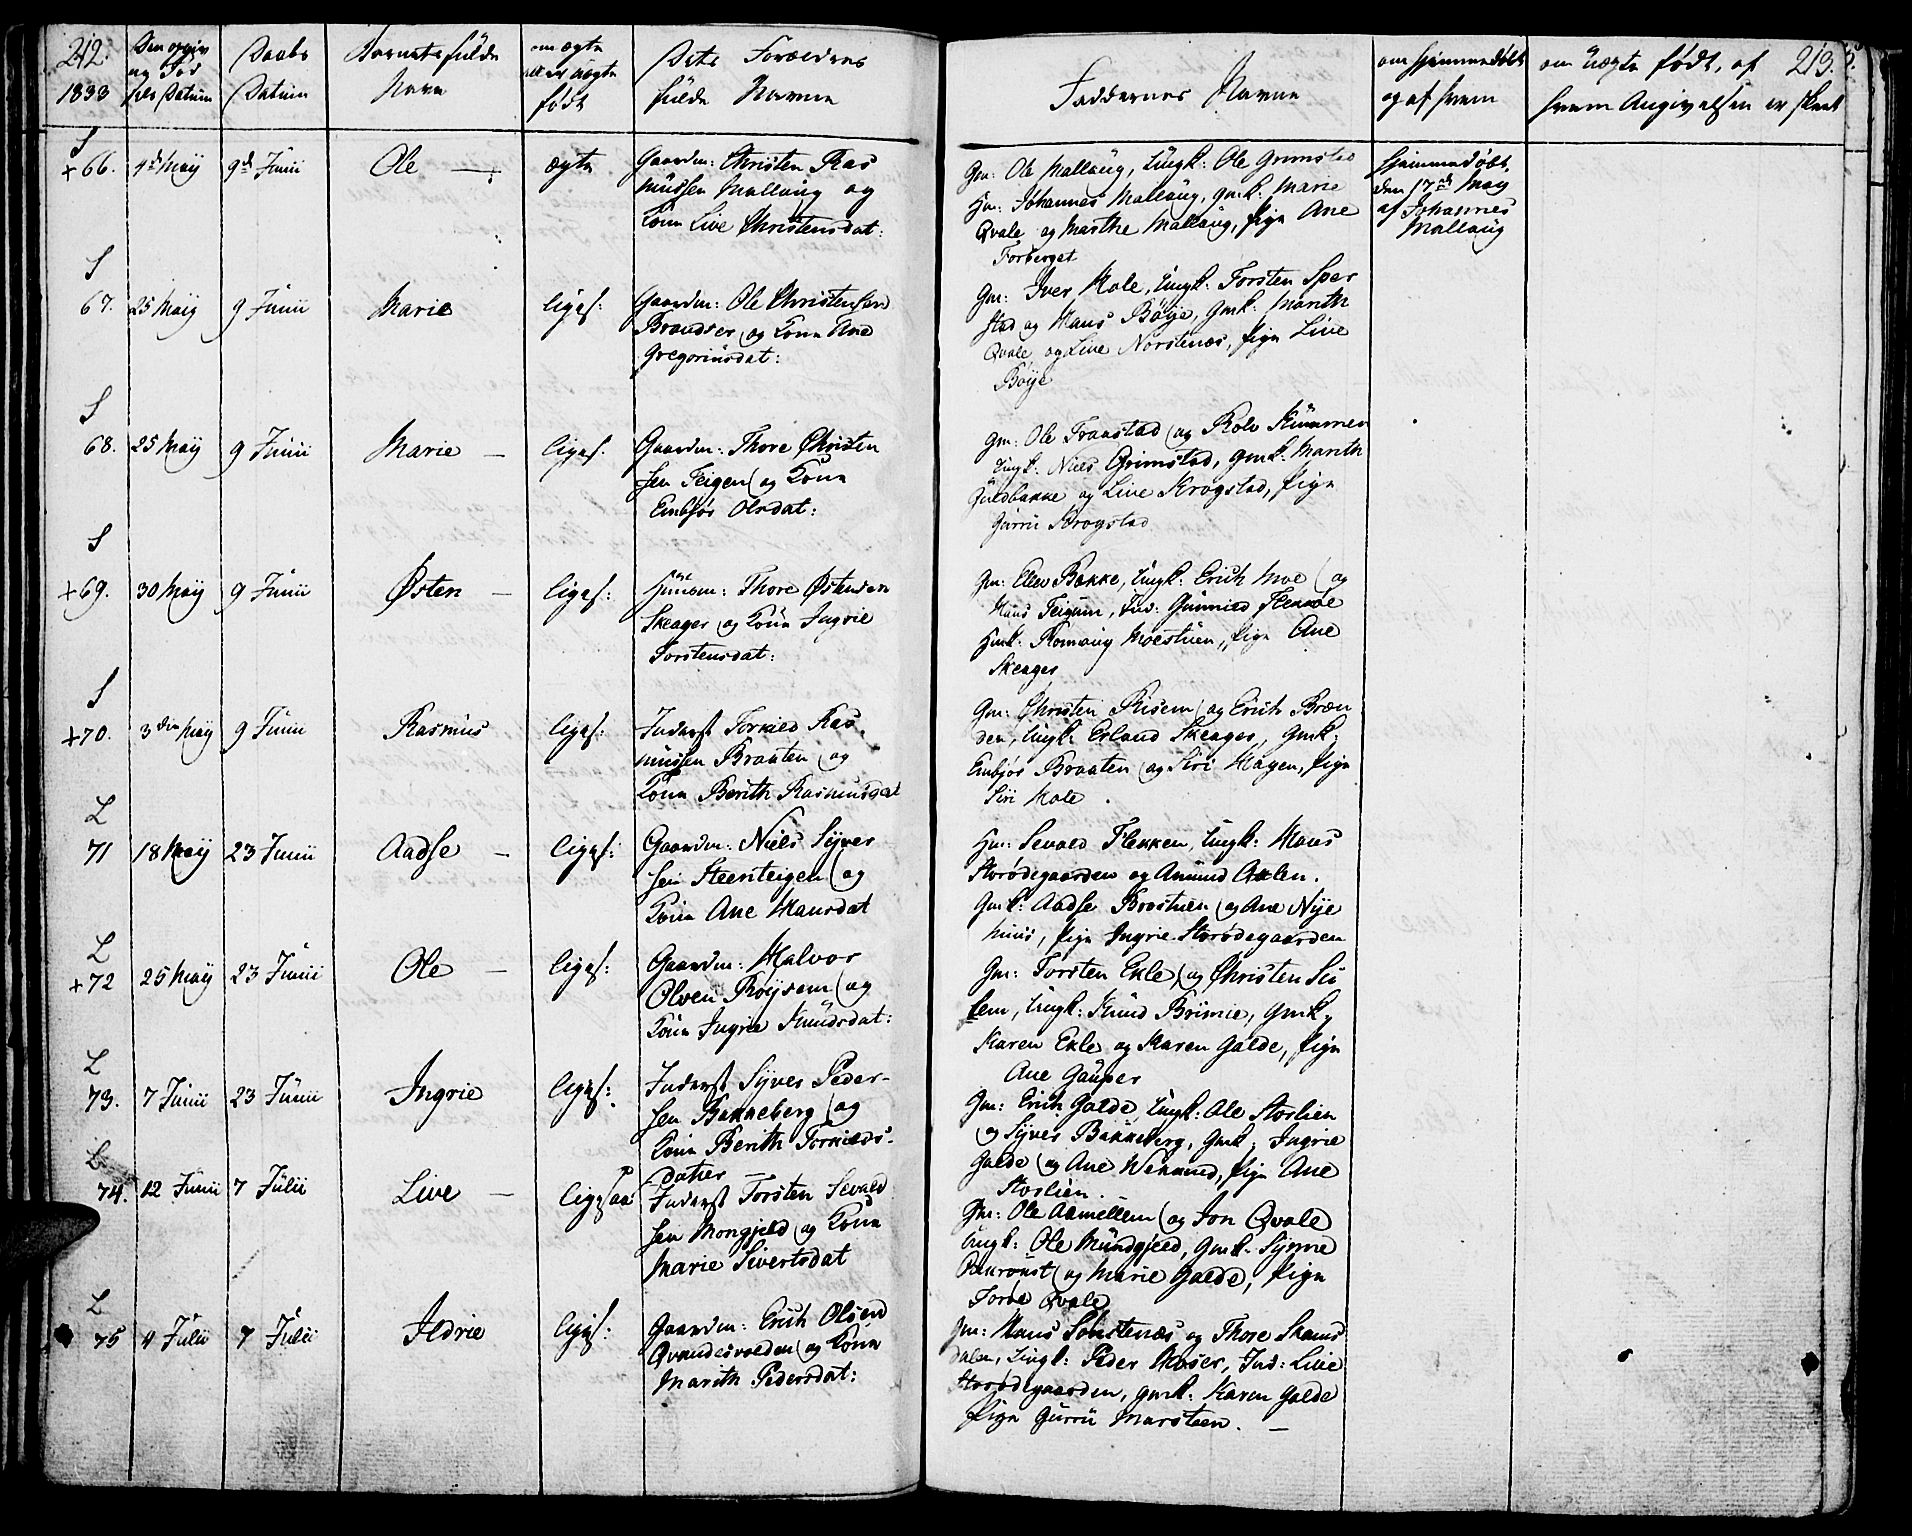 212.
1833
Den opgiv
Fød
Datum
Daabs
Datum
Barnets fulde
Navn
om ægte
eller uægte
født
Dets Forældres
fulde Navne
Faddernes Navne
om hjemmedøbt
og af hvem
om uægte født, af
hvem Angivelsen er skeet
213.
S
+66.
4de Maij
9de Junii
Ole —
ægte
Gaardm: Christen Ras
mussen Mallaug og
Kone Live Christensdat:
Gm: Ole Mallaug, Ungk: Ole Grimstad
Hm: Johannes Mallaug, gmk. Marie
Qvale og Marthe Mallaug, Pige Ane
Forberget
Hjemmedøbt
den 17de May
af Johannes
Mallaug
S
67.
25 Maij
9 Junii
Marie
liges:
Gaardm: Ole Christensen
Brandser og Kone Ane
Gregoriusdat:
Gm: Iver Hole, Ungk: Torsten Sper
stad og Hans Bøije, Gmk: Marith
Qvale og Live Norstenæs, Pige Live
Bøije
S
68.
25 Maij
9 Junii
Marie —
liges:
Gaardm: Thore Christen
sen Teigen og Kone
Embjør Olsdat:
Gm: Ole Franstad og Rolv Kummen
Ungk: Niels Grimstad, gmk: Marith
Guldbakke og Live Krogstad, Pige
Gurru Krogstad
S
+69.
30 Maij
9 Junii
Østen —
ligef:
Huusm: Thore Østensen
Skeager og Kone Ingrie
Torstensdat:
Gm: Ellev Bakke, Ungk: Erich Moe og
Hans Teigum, Ind: Gunnild Flekkøe
Hmk: Romoug Moestuen, Pige Ane
Skeager
S
+70.
3die Maij
9 Junii
Rasmus
ligef:
Inderst Torkied Ras
mussen Braaten og
Kone Berith Rasmusdat
Gm: Christen Risem og Erich Bræn
den, Ungk: Erland Skeager, Gmk:
Embjør Braaten og Siri Hagen, Pige
Siri Hole.
L
71
18 Maij
23 Junii
Aadse —
ligef:
Gaardm: Niels Syver
sen Steenteigen og
Kone Ane Hansdat
Hm: Sevald Flekken, Ungk: Hans
Storødegaarden og Amund Aalen.
Gmk: Aadse Brostuen og Ane Nye
huus, Pige Ingrie Storødegaarden
L
+72
25 Maij
23 Junii
Ole —
ligef:
Gaardm: Halvor
Olsen Røysem og
Kone Ingrie Knudsdat:
Gm: Torsten Ekle og Christen Su
lem, Ungk: Knud Brimie, Gmk:
Karen Ekle og Karen Galde, Pige
Ane Gauper
L
73.
7 Junii
23 Junii
Ingrie
ligef:
Inderst Syver Peder-
sen Bakkeberg og
Kone Berith Torkieds-
datter
Gm: Erich Galde, Ungk: Ole Storlien
og Syver Bakkeberg, Gmk: Ingrie
Galde og Ane Wekkum, Pige Ane
Storlien.
L
74.
12 Junii
7 Julii
Live —
ligesaa
Inderst Torsten Sevald
sen Mongjeld og Kone
Marie Sivertsdat
Gm: Ole Aamellem og Jon Qvale
Ungk: Ole Mundgjeld, Gmk. Synne
Bakrønst og Marie Galde, Pige
Torøe Qvale
L
75
4 Julii
7 Julii
Ildrie
ligef:
Gaardm: Erich Olsen
Qvandesvolden og Kone
Marith Pedersdat:
Gm: Hans Solstenæs og Thore Skams
dalen, Ungk: Peder Moser, Ind: Live
Storødegaarden, gmk: Karen Galde
Pige Gurru Marsteen. —